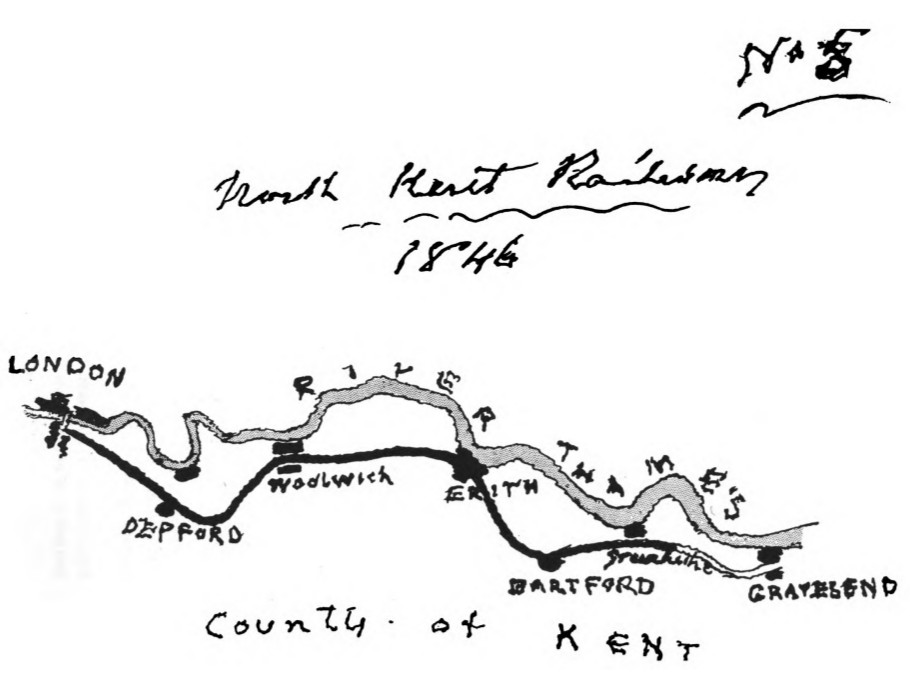 No 5
North Kent Railway
1846
LONDON
RIVER THAMES
Woolwich
ERITH
DEPFORD
Greenhithe
DARTFORD
GRAVESEND
County of KENT